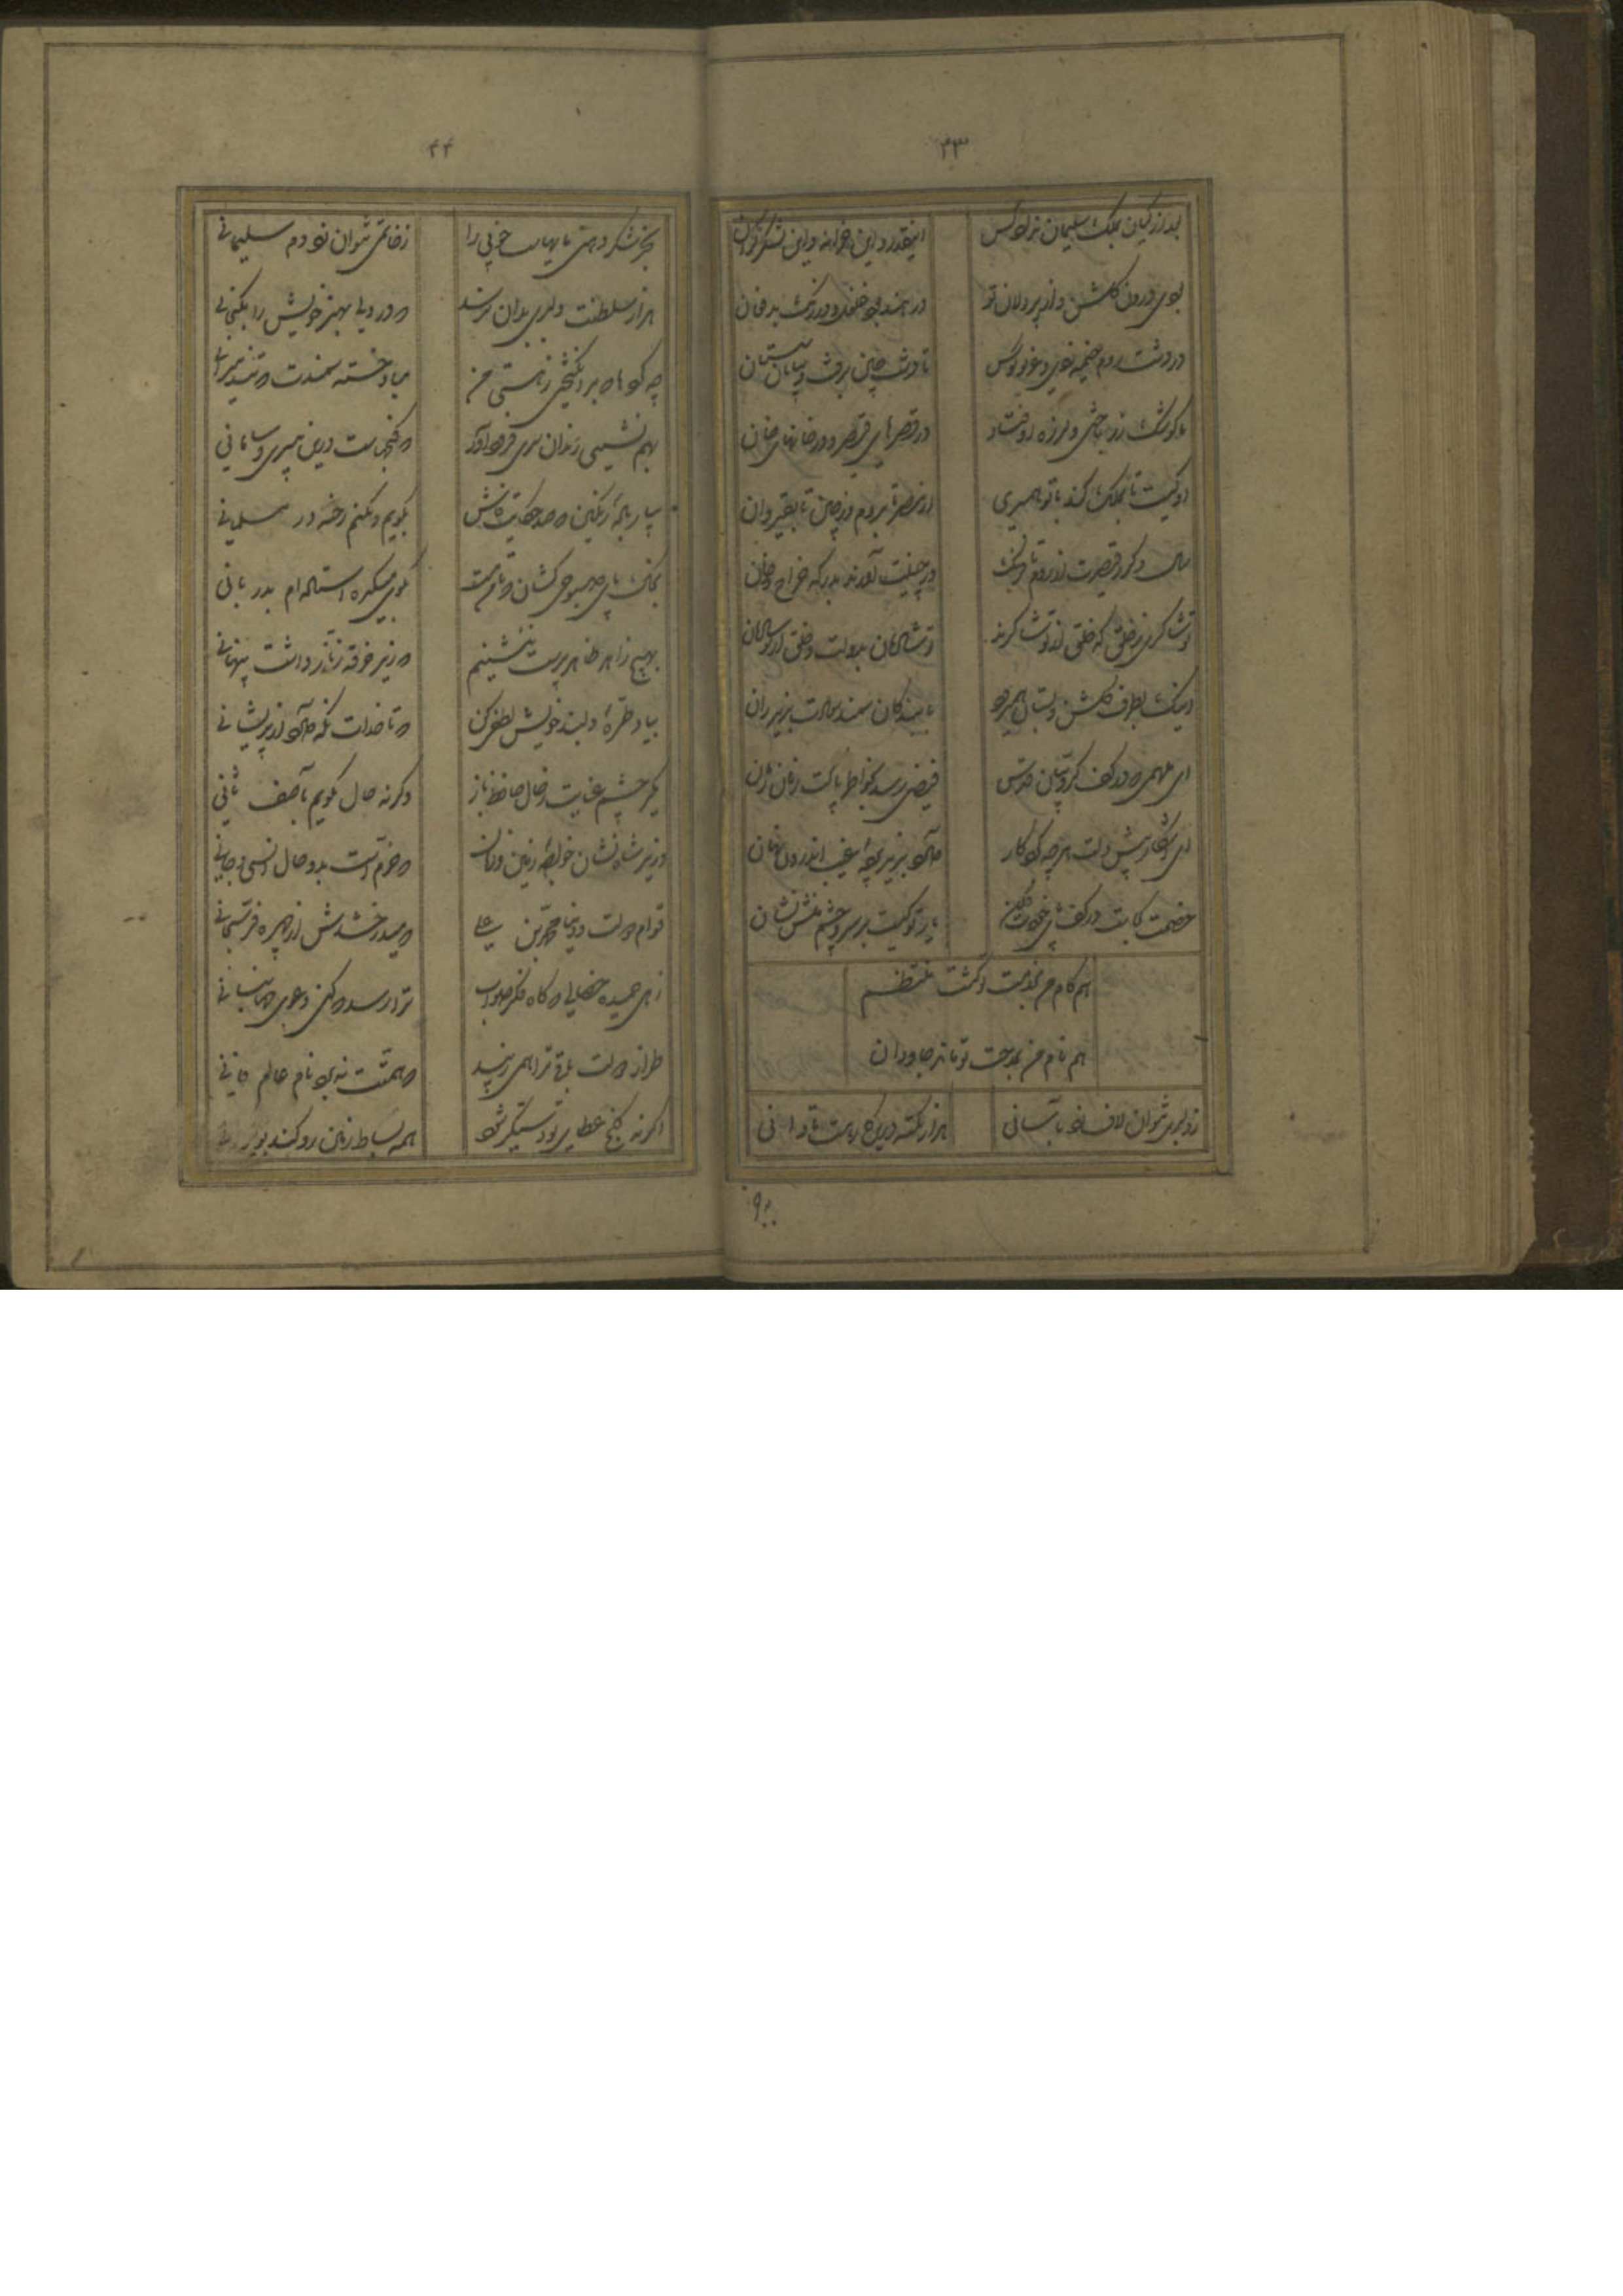 ۴۳
بعد از کیان بملک سلیمان نداد کس
اینقدر و این خزانه و این لشکر گران
بودی درون گلشن و از پردلان تو
در هند بود غلغل و در زنگ بد فغان
در دشت روم خیمه زدی و غریو کوس
تا دشت چین برفت و بیابان سیستان
تا کوشک زرد تاختی و لرزه اوفتاد
در قصرهای قیصر و در خانهای خان
آن کیست تا بملک کند با تو همسری
از مصر تا بروم و ز چین تا بقیروان
سال دگر ز قیصرت از روم تاج
وز چینت آورند بدرگه خراج جان
تو شاکری ز خالق که خلق از تو شاکرند
تو شادمان بدولت و خلق از تو شادمان
اینک بطرف گلشن و بستان همیرود
با بندگان سمند سعادت بزیر ران
ای ملهمی که در کف کروبیان قدس
فیضی رسد بخاطر پاکت زمان زمان
ای آشکار پیش دلت هر چه کردگار
دارد بزیر پرده غیب اندرون نهان
خصمت کجاست در کف پای خودت فکن
یار تو کیست بر سر و چشم منش نشان
هم کام من بخدمت تو گشت منتظم
هم نام من بمدحت تو ماند جاودان
ز دلبری نتوان لاف زد بآسانی
هزار نکته درین کار هست تا دانی
۴۴
بجز شکر دهنی مایهاست خوبی را
بخاتمی نتوان زد دم سلیمانی
هزار سلطنت دلبری بدان نرسد
که در دلی بهنر خویش را بگنجانی
چه گردها که برانگیختی ز هستی من
مباد خسته سمندت که تند میرانی
بهم نشینی رندان سری فرود آور
که گنجهاست درین بی سری و سامانی
بیار باده رنگین که صد حکایت خوش
بگویم و نکنم رخنه در مسلمانی
بخاک پای صبوحی کشان که تا من مست
بکوی میکده استاده ام بدربانی
بهیچ زاهد ظاهر پرست ننشینم
که زیر خرقه نه زنار داشت پنهانی
بیاد طره دلبند خویش لطفی کن
که تا خدات نگه دارد از پریشانی
مگیر چشم عنایت ز حال حافظ باز
وگرنه حال بگویم بآصف ثانی
وزیر شاه نشان خواجه زمین و زمان
که خرم است بدو حال انسی و جانی
قوام دولت و دنیا محمد بن علی
که میدرخشدش از چهره فر یزدانی
زهی حمیده خصالی که گاه فکر صواب
ترا رسد که کنی دعوی جهانبانی
طراز دولت باقی ترا همی زیبد
که همتت نبرد نام عالم فانی
اگر نه گنج عطای تو دستگیر شود
همه بسیط زمین رو کند بویرانی